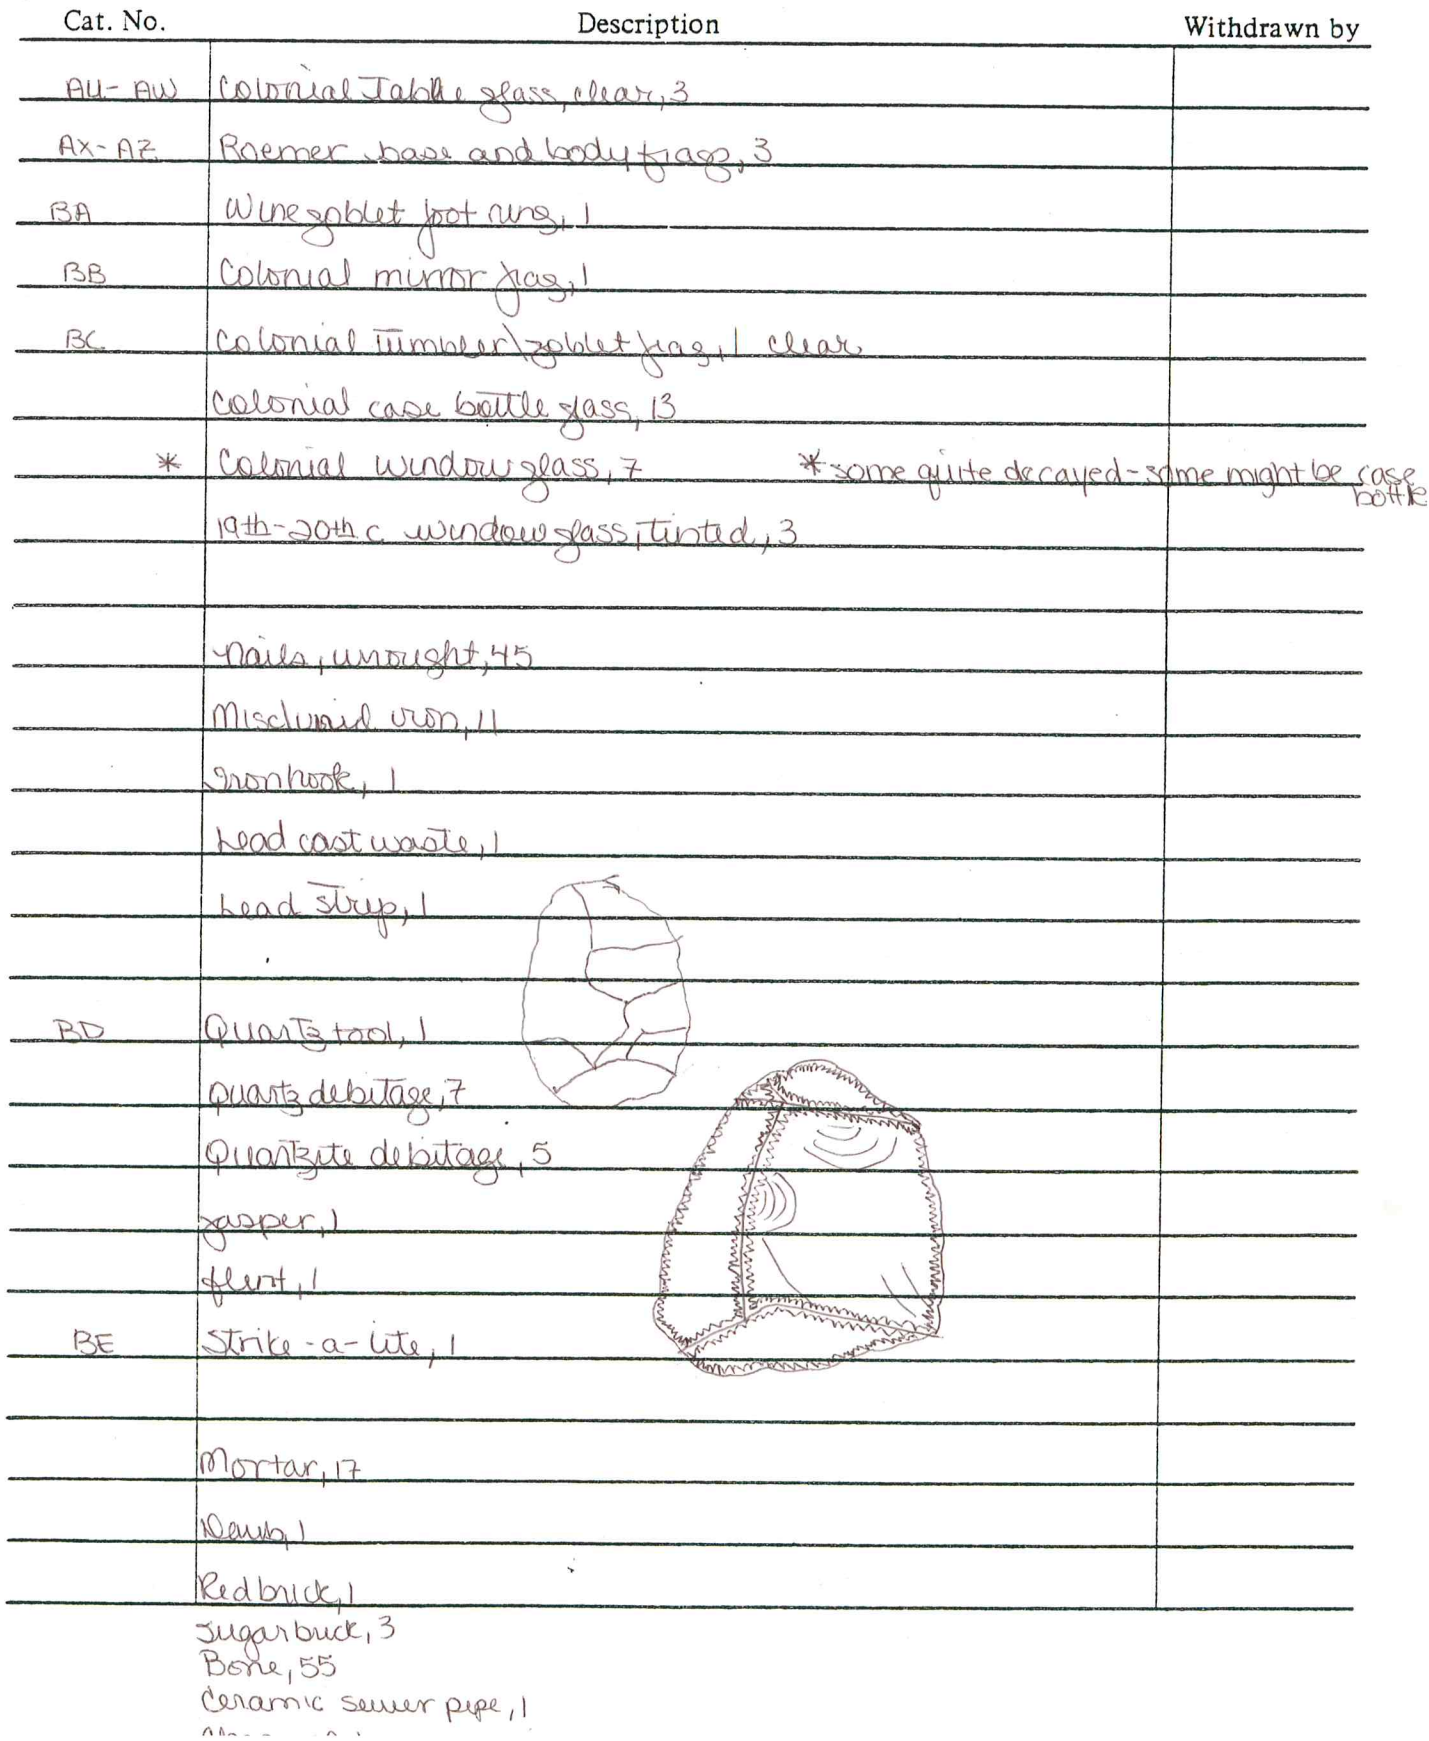 Cat. No. Description Withdrawn by
AU-AW Colonial Table glass, clear, 3
AX-AZ Roemer base and body frags, 3
BA Wine goblet foot ring, 1
BB Colonial mirror frag, 1
BC Colonial Tumbler\goblet frag, 1 clear
Colonial case bottle glass, 13
* Colonial window glass, 7 *some quite decayed - some might be case
bottle
19th-20th c window glass, tinted, 3
Nails, wrought, 45
Misc iron, 11
Iron hook, 1
Lead cast waste, 1
Lead strip, 1
BD Quartz tool, 1
Quartz debitage, 7
Quartzite debitage, 5
Jasper, 1
flint, 1
BE Strike-a-lite, 1
Mortar, 17
Daub, 1
Red brick, 1
Sugar brick, 3
Bone, 55
Ceramic sewer pipe, 1